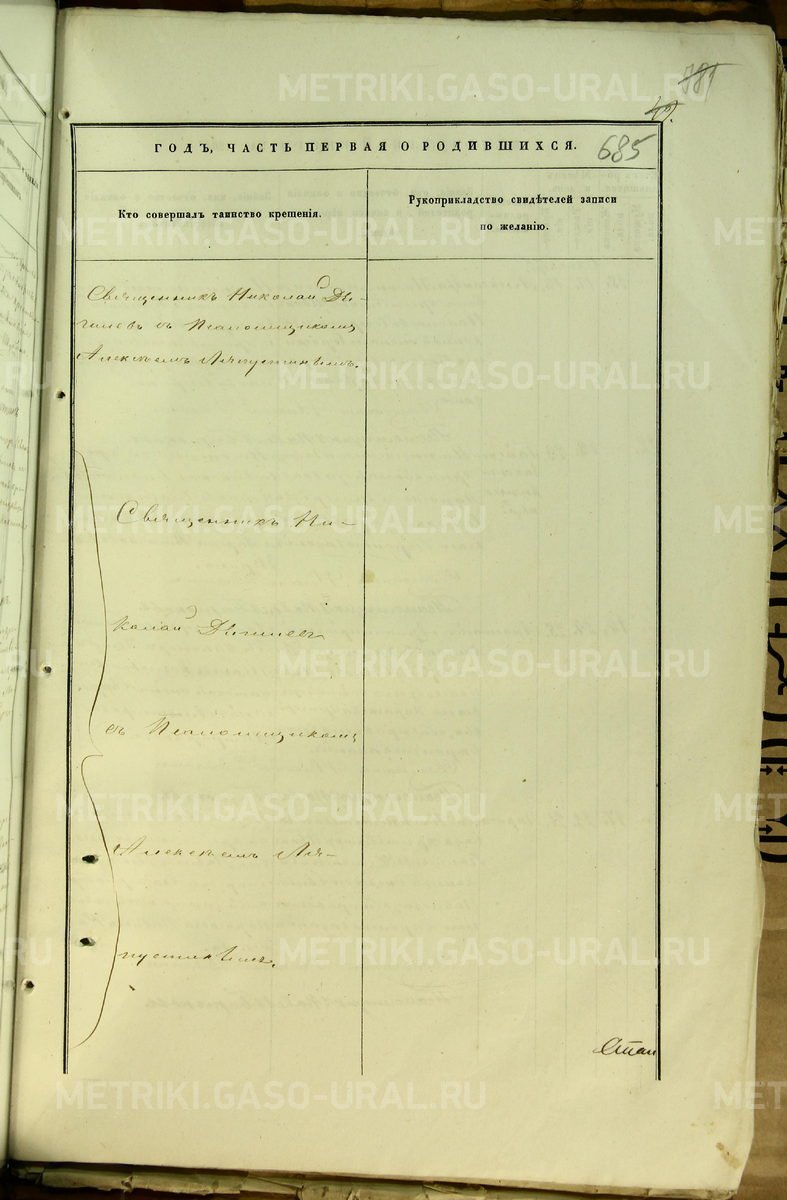 781
49.
685
ГОДЪ, ЧАСТЬ ПЕРВАЯ О РОДИВШИХСЯ.
Кто совершалъ таинство крещенія.
Рукоприкладство свидѣтелей записи
по желанію.
Священникъ Николай Ды-
гилевъ съ Псаломщикомъ
Алексѣемъ Ляпустинымъ.
Священникъ Ни-
колай Дягилевъ
съ Псаломщикомъ
Алексѣемъ Ля-
пустинымъ.
METRIKI.GASO-URAL.RU